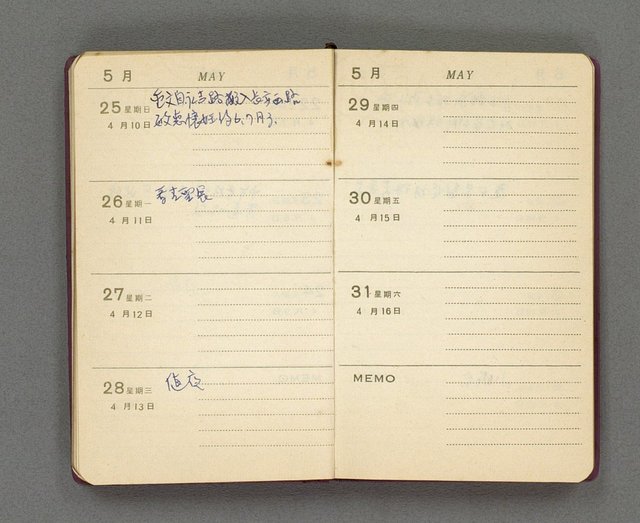 5 月 MAY
25 星期日
4 月 10 日
26 星期一
4 月 11 日
27 星期二
4 月 12 日
28 星期三
4 月 13 日
值夜
5 月 MAY
29 星期四
4 月 14 日
30 星期五
4 月 15 日
31 星期六
4 月 16 日
MEMO